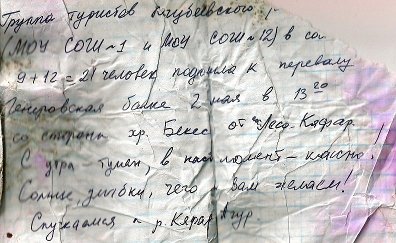 Группа туристов Клубевского р-
(МОУ СОШ №1 и МОУ СОШ №12) в со
9 + 12 = 21 человек подошла к перевалу
Генеровская балка 2 мая в 13 20
со стороны хр. Бекес от Кяфар.
С утра туман, в наст. момент – классно!
Солнце, улыбки, чего и Вам желаем!
Спускаемся к р. Кяфар Агур.